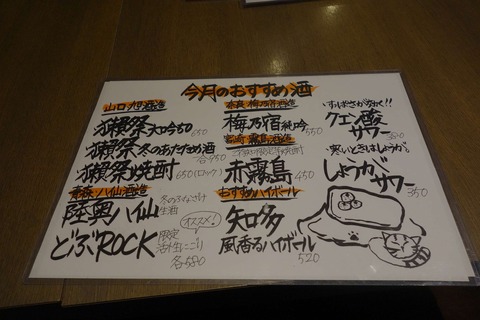 今月のおすすめ酒
山口 旭酒造
獺祭 大吟50 650
獺祭 冬のあたため酒
各950
獺祭焼酎 650(ロック)
青森 八仙酒造
陸奥八仙 冬のふなざけ 生酒
オススメ!
どぶROCK 限定 活性にごり 各580
奈良 梅乃宿酒造
梅乃宿 純吟 550
宮崎 霧島酒造
赤霧島 450
おすすめハイボール
知多
風香るハイボール
520
クエン酸
サワー
寒いときはしょうが。
しょうが
サワー
350